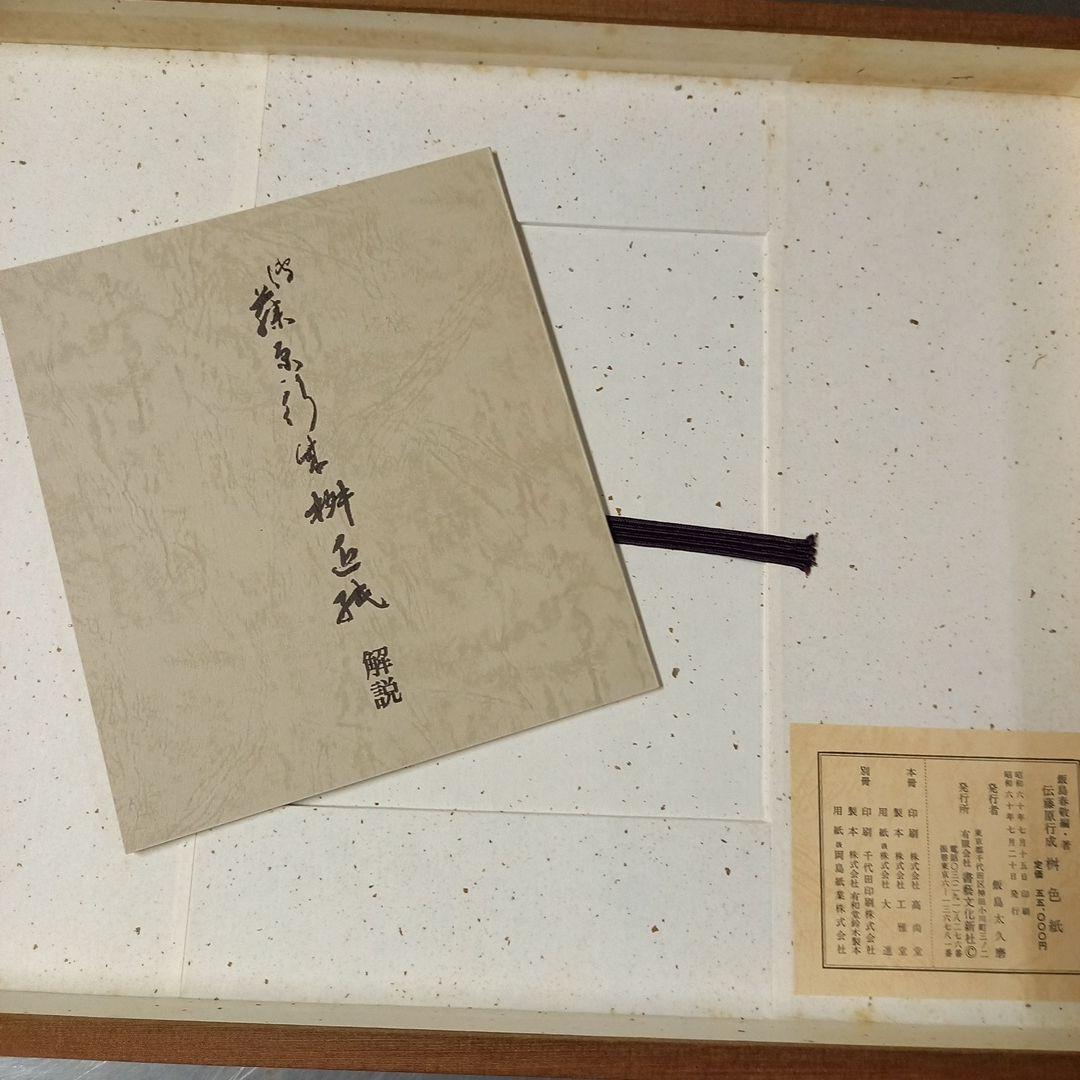 伝藤原行成桝色紙
解説
飯島春敬編・著
伝藤原行成 桝色紙
定価 五五、〇〇〇円
昭和六十年七月十五日 印刷
昭和六十年七月二十日 発行
発行者 飯島太久磨
東京都千代田区神田小川町三ノ二
発行所 有限会社 書藝文化新社©
電話〇三-二九一-八二七六番
振替東京六-一三六七八一番
本冊 印刷 株式会社 高尚堂
製本 株式会社 工雅堂
用紙 株式会社 大進
別冊 印刷 千代田印刷株式会社
製本 株式会社有和堂鈴木製本
用紙 岡島紙業株式会社